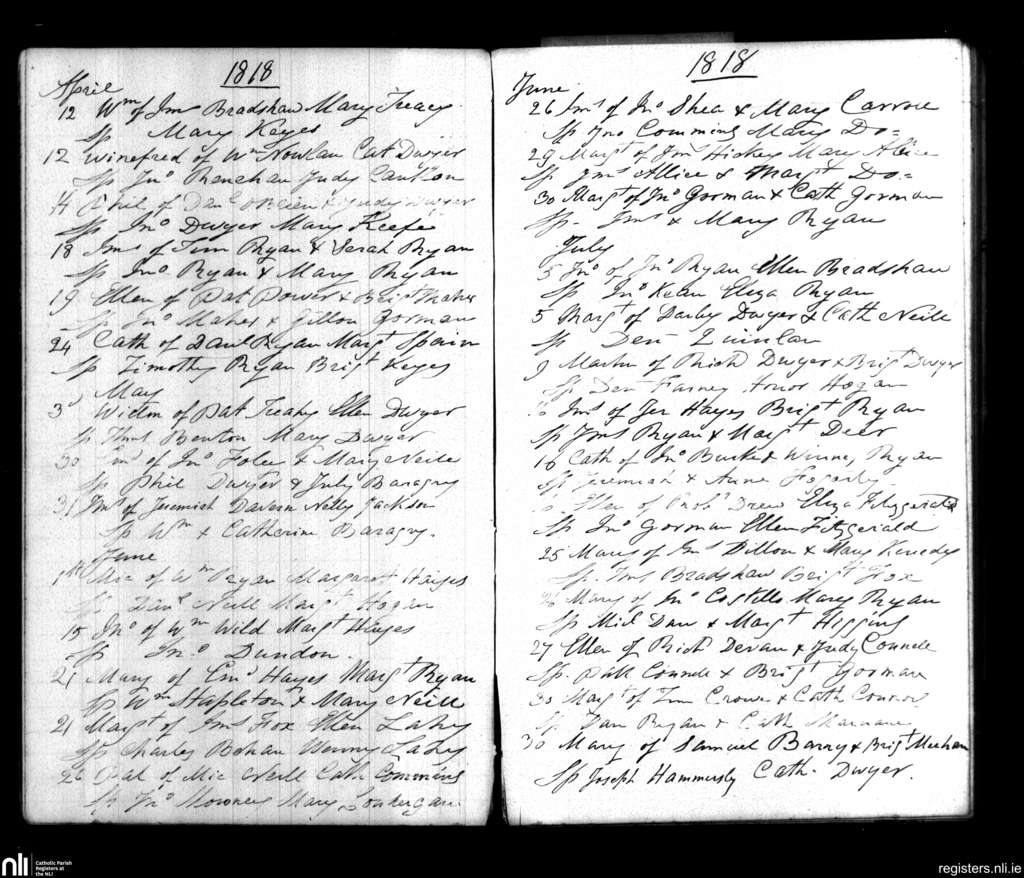 1818
April
12 Wm of Jms Bradshaw Mary Treacy
Sp Mary Keyes
12 Winefred of Wm Nowlan Cat Dwyer
Sp Jno Judy
14 Phil of Danl OBrien & Judy Dwyer
Sp Jno Dwyer Mary Keefe
18 Jms of Tim Ryan & Sarah Ryan
Sp Jno Ryan & Mary Ryan
19 Ellen of Pat Power & Brigt Maher
Sp Jno Maher & Gorman
24 Cath of Danl Ryan Margt Spain
Sp Timothy Ryan Brigt Keyes
May
3 of Pat Treahy Ellen Dwyer
Sp Thms Benton Mary Dwyer
30 of Jno Foley & Mary Neill
Sp Phil Dwyer & July Baragry
31 Jms of Jeremiah Davern Nelly Jackson
Sp Wm & Catherine Baragry.
June
1st Mic of Wm Ryan Margaret Hayes
Sp Danl Neill Margt Hogan
15 Jno of Wm Wild Margt Hayes
Sp Jno Dundon.
21 Mary of Hayes Margt Ryan
Sp Wm Stapleton & Mary Neill
21 Margt of Jms Fox Ellen Lahy
Sp Charles Bohan Wenny Lahy
26 Pat of Mic Neill Cath Commins
Sp Jno Mary Lonergan
1818
June
26 Jms of Jno Shea & Mary Carroll
Sp Jno Commins Mary Do=
29 Margt of Jms Hickey Mary Allice
Sp Jms Allice & Margt Do=
30 Margt of Jno Gorman & Cath Gorman
Sp. Jms & Mary Ryan
July
5 Jno of Jno Ryan Ellen Bradshaw
Sp Jno Kean Eliza Ryan
5 Margt of Darby Dwyer & Cath Neill
Sp Den Quinlan
9 Martin of Richd Dwyer & Brigt Dwyer
Sp Den Farney Hogan
Jms of Jer Hayes Brigt Ryan
Sp Jms Ryan & Margt Deer
16 Cath of Jno Burke & Ryan
Sp Jeremiah & Anne Fogarty
Ellen of Robt Drew Eliza Fitzgerald
Sp Jno Gorman Ellen Fitzgerald
25 Mary of Jms Dillon & Mary Kenedy
Sp. Jms Bradshaw Brigt Fox
26 Mary of Jno Costillo Mary Ryan
Sp Mic Daw & Margt Higgins
27 Ellen of Richd Devan & Judy Connell
Sp. Patt Connell & Brigt Gorman
30 Margt of Tim Crowe & Cath Connor
Sp Dan Ryan & Cath
30 Mary of Samuel Barry & Brigt Meehan
Sp Joseph Hammersly Cath. Dwyer.
nli
Catholic Parish
Registers at
the NLI
registers.nli.ie